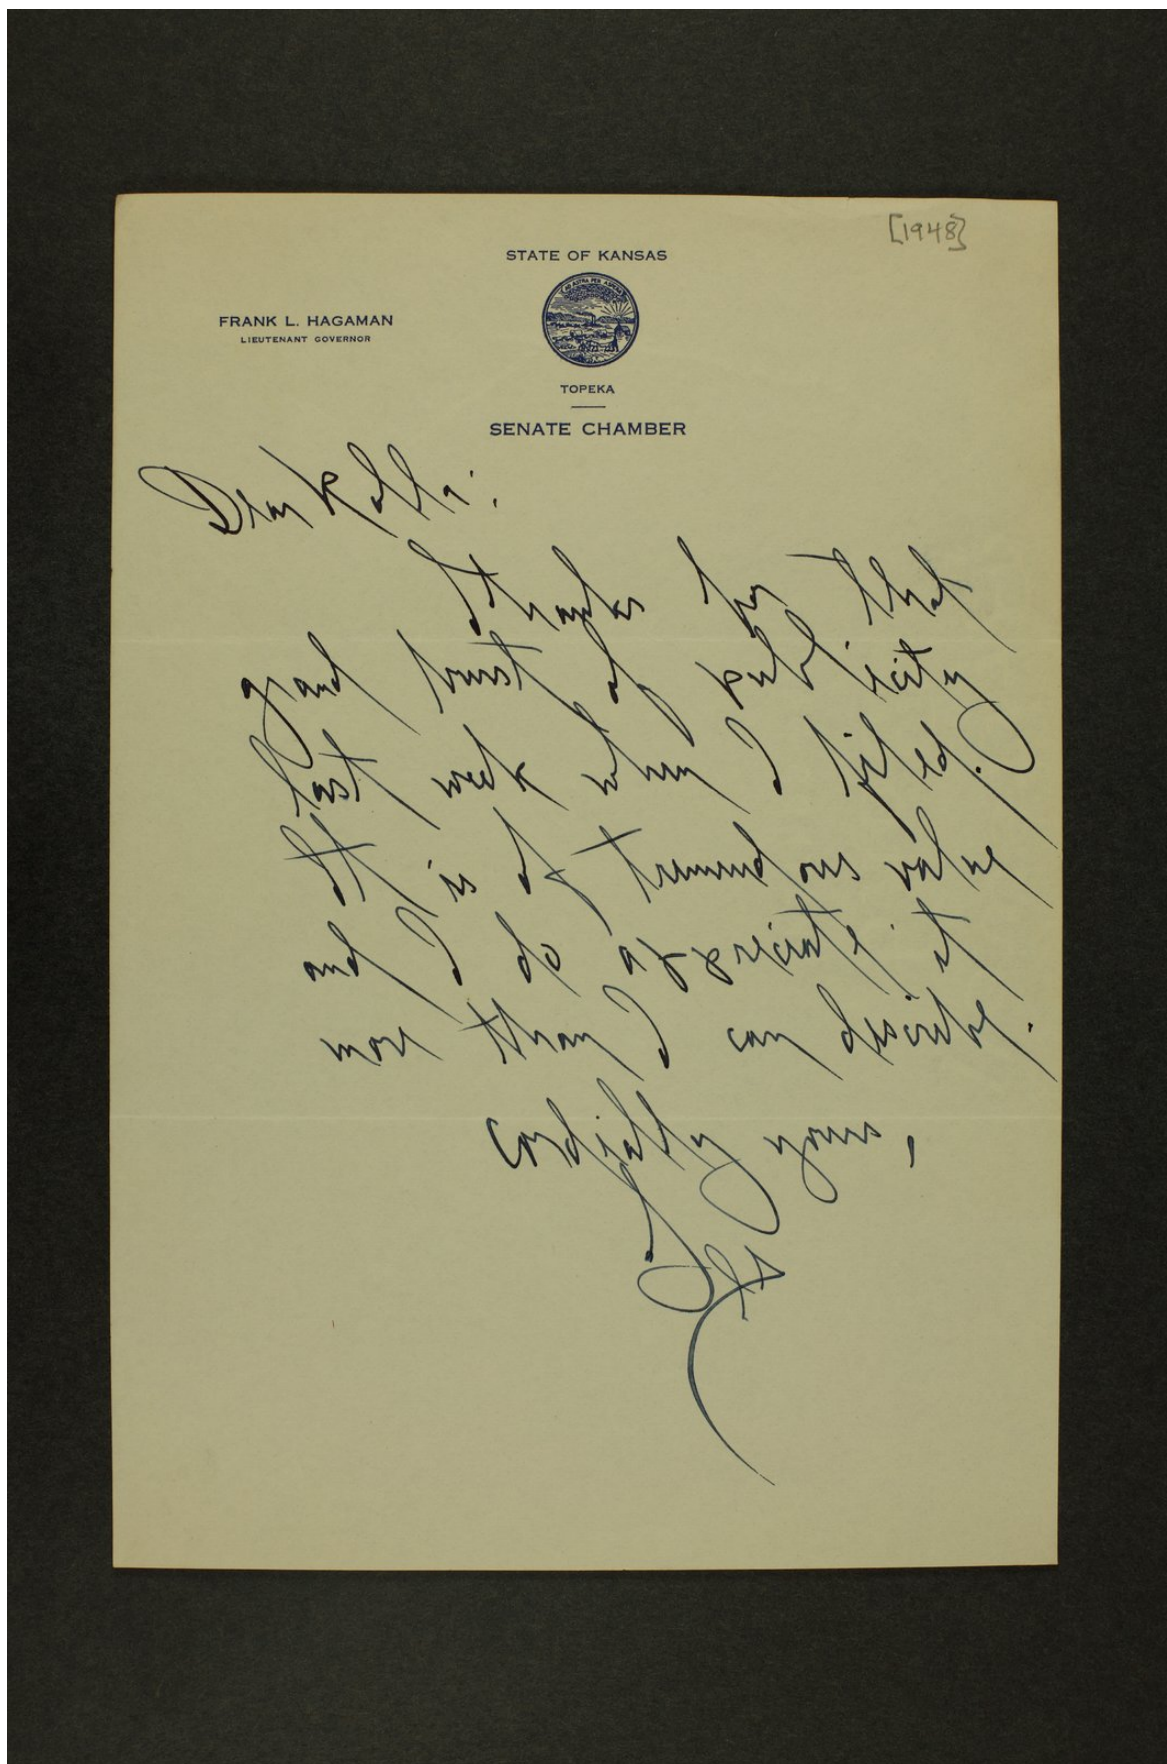 [1948]
STATE OF KANSAS
FRANK L. HAGAMAN
LIEUTENANT GOVERNOR
AD ASTRA PER ASPERA
TOPEKA
SENATE CHAMBER
Dear Rolla:
Thanks for that
grand burst of publicity
last week when I filed.
It is of tremendous value
and I do appreciate it
more than I can describe.
Cordially yours,